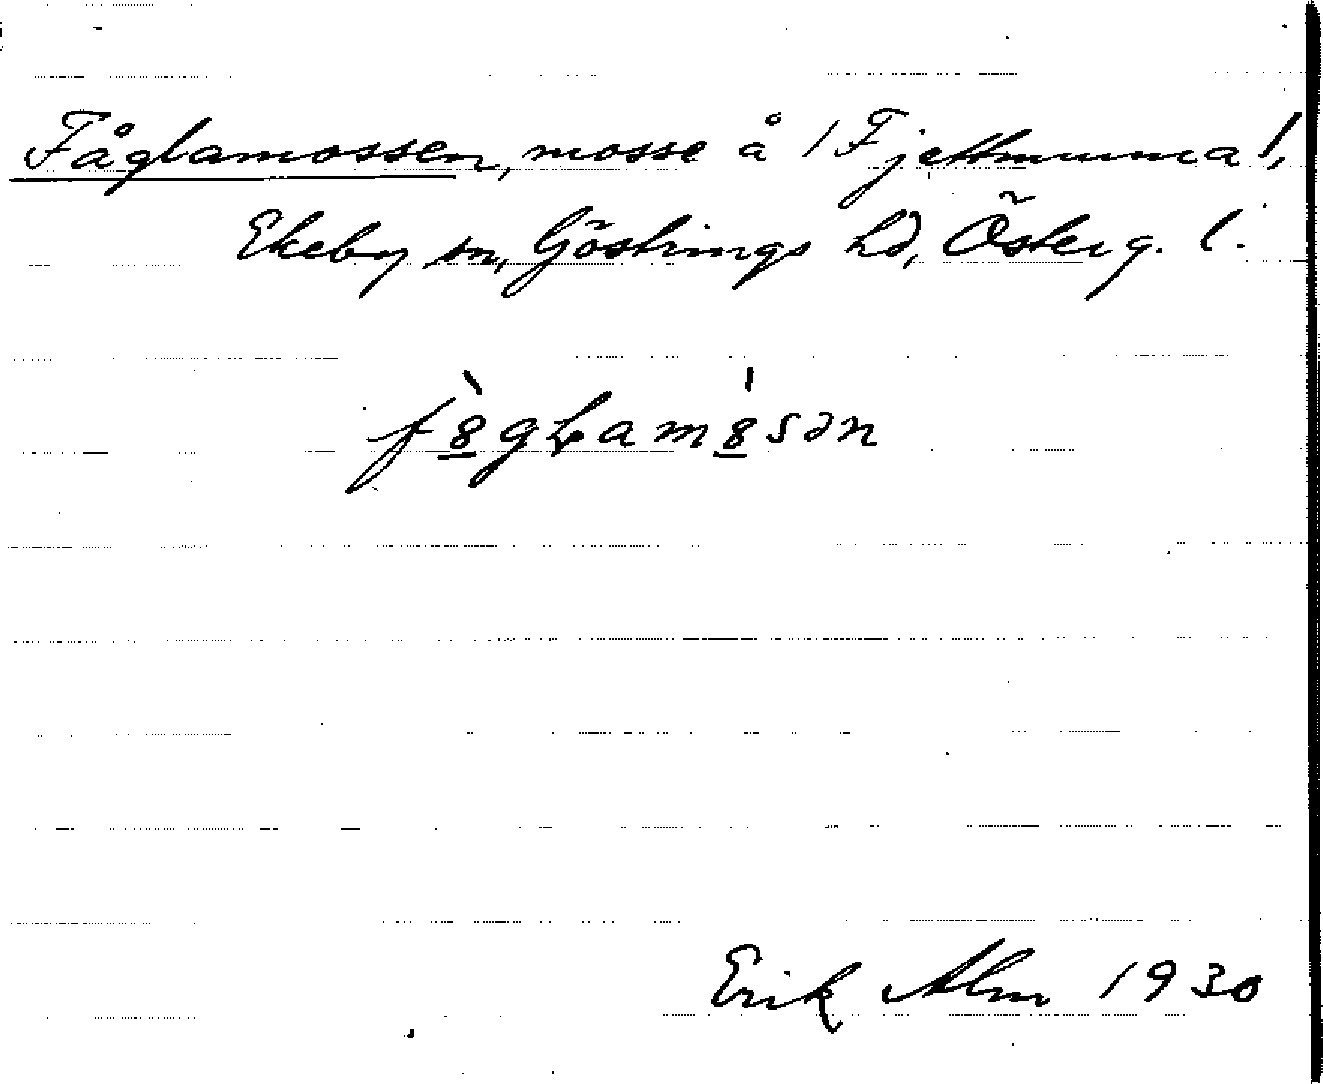 Fåglamossen, mosse å /Fjettmunna/,
Ekeby sn, Göstrings hd, Österg. l.
f8̱̀gɫam8̱́sən
Erik Alm 1930